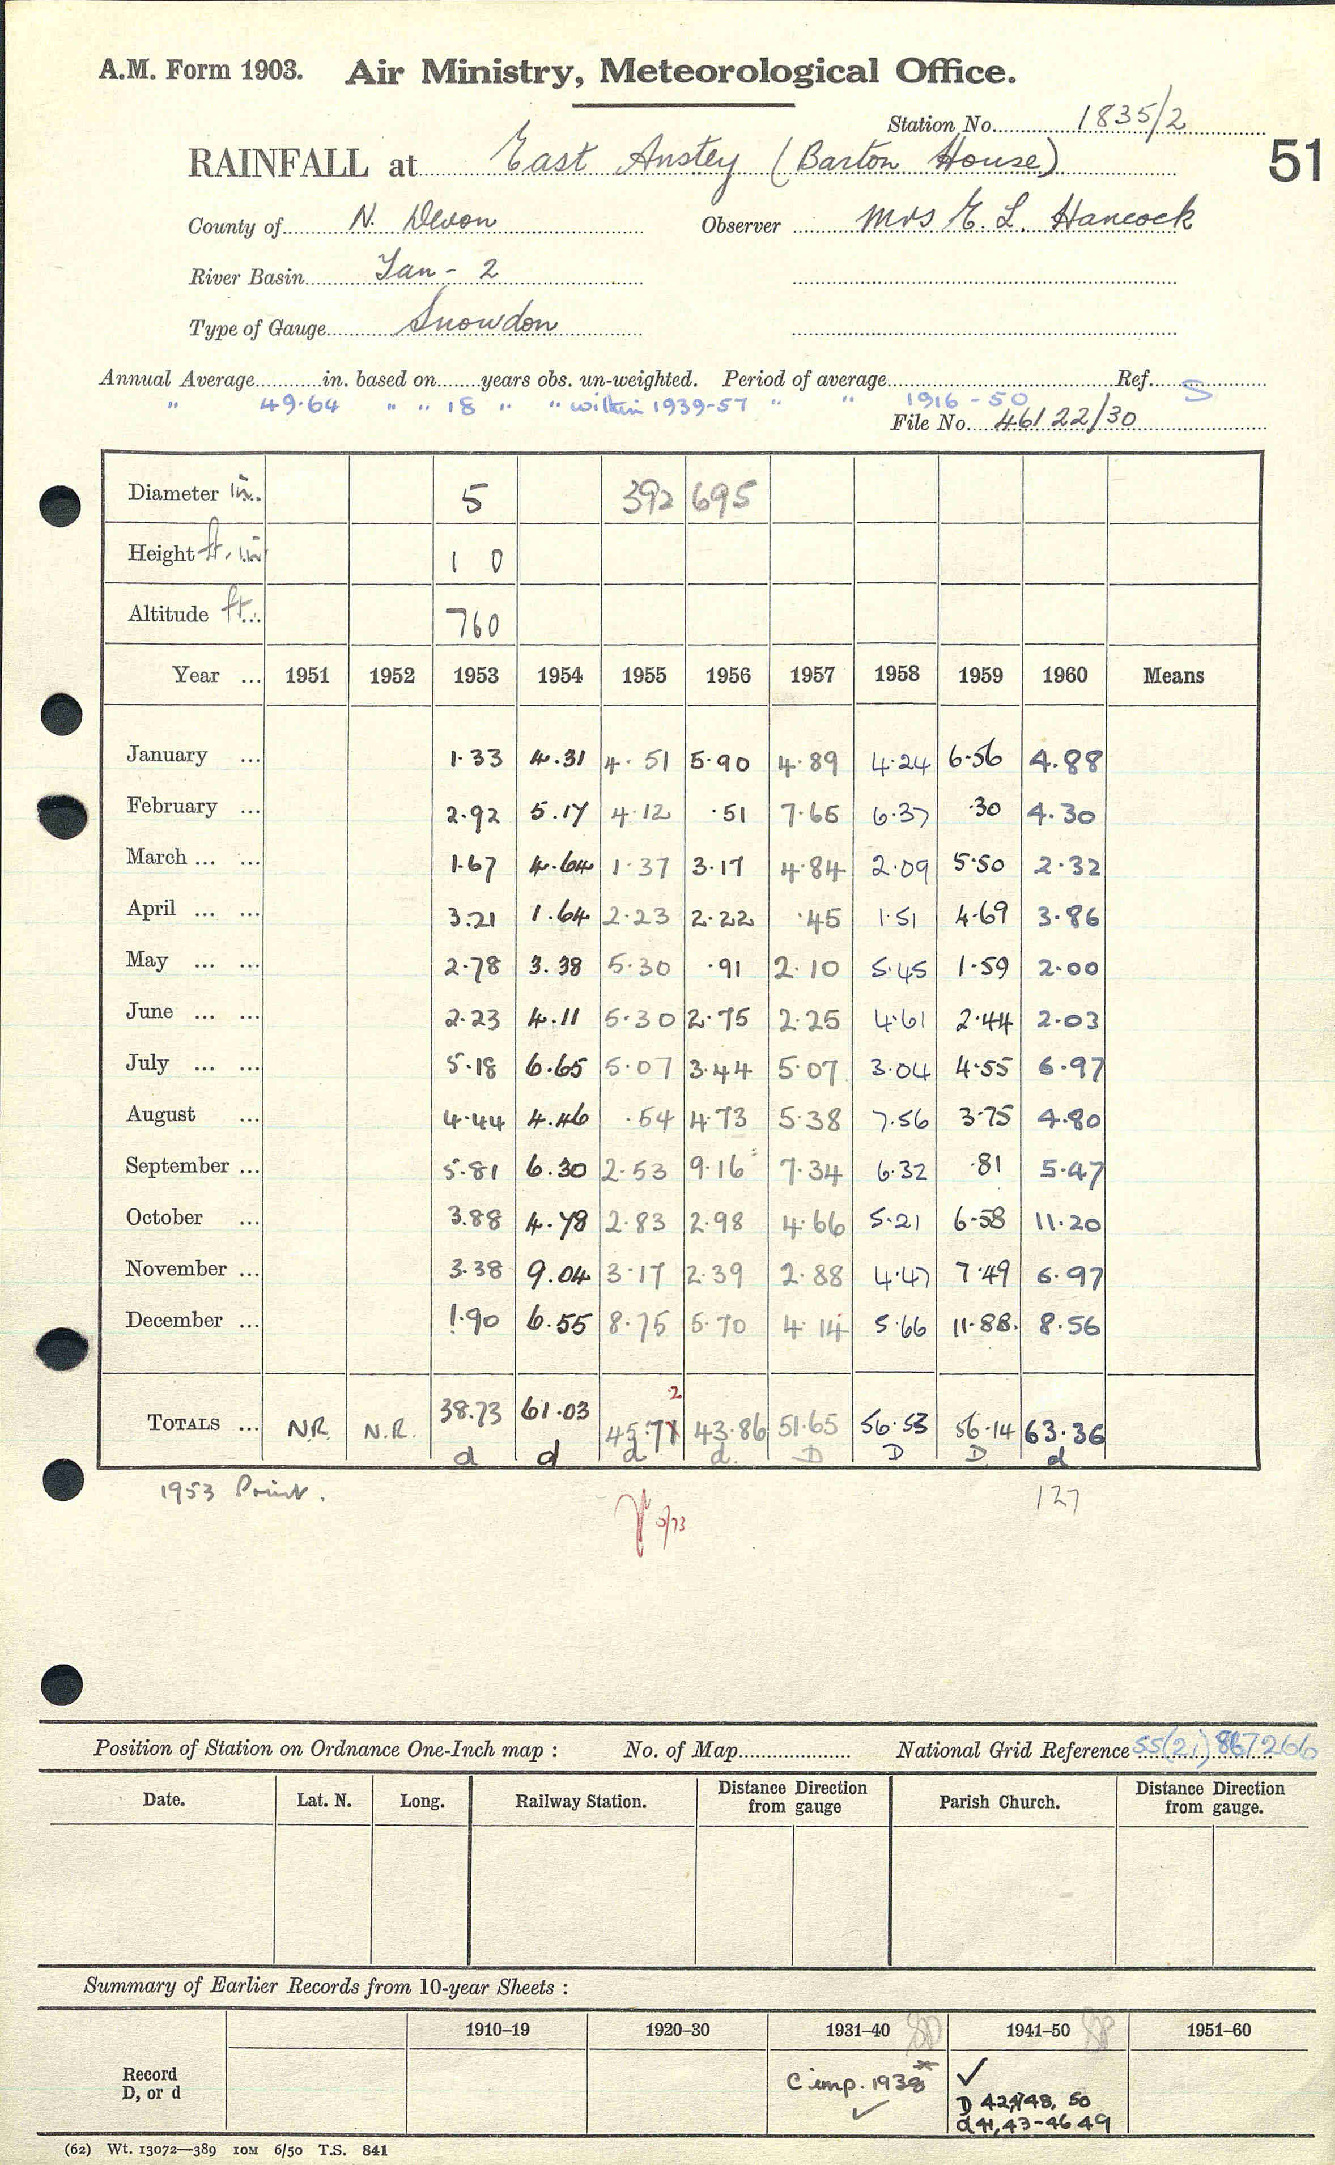 A.M. Form 1903. Air Ministry, Meteorological Office.
Station No. 1835/2
RAINFALL at East Anstey (Barton House) 51
County of N. Devon Observer Mrs E. L. Hancock
River Basin Tan - 2
Type of Gauge Snowdon
Annual Average in. based on years obs. un-weighted. Period of average Ref. S
" 49.64 " " 18 " " within 1939-57 " " 1916-50
File No. 46122/30
Diameter in. 5 392 695
Height ft. in 1 0
Altitude ft. 760
Year ... 1951 1952 1953 1954 1955 1956 1957 1958 1959 1960 Means
January ... 1.33 4.31 4.51 5.90 4.89 4.24 6.56 4.88
February ... 2.92 5.17 4.12 .51 7.65 6.37 .30 4.30
March ... ... 1.67 4.64 1.37 3.17 4.84 2.09 5.50 2.32
April ... ... 3.21 1.64 2.23 2.22 .45 1.51 4.69 3.86
May ... ... 2.78 3.38 5.30 .91 2.10 5.45 1.59 2.00
June ... ... 2.23 4.11 5.30 2.75 2.25 4.61 2.44 2.03
July ... ... 5.18 6.65 5.07 3.44 5.07 3.04 4.55 6.97
August ... 4.44 4.46 .54 4.73 5.38 7.56 3.75 4.80
September ... 5.81 6.30 2.53 9.16 7.34 6.32 .81 5.47
October ... 3.88 4.78 2.83 2.98 4.66 5.21 6.58 11.20
November ... 3.38 9.04 3.17 2.39 2.88 4.47 7.49 6.97
December ... 1.90 6.55 8.75 5.70 4.14 5.66 11.88. 8.56
2
TOTALS ... N.R. N.R. 38.73 61.03 45.71 43.86 51.65 56.53 56.14 63.36
d d d d. D D D d
1953 Print. 127
Position of Station on Ordnance One-Inch map : No. of Map National Grid Reference SS(21) 867266
Date. Lat. N. Long. Railway Station. Distance Direction from gauge Parish Church. Distance Direction from gauge.
Summary of Earlier Records from 10-year Sheets :
1910–19 1920–30 1931–40 1941–50 1951–60
Record D, or d C imp. 1938* ✓ ✓
D 42, 48, 50
d 41, 43-46 49
(62) Wt. 13072—389 IOM 6/50 T.S. 841